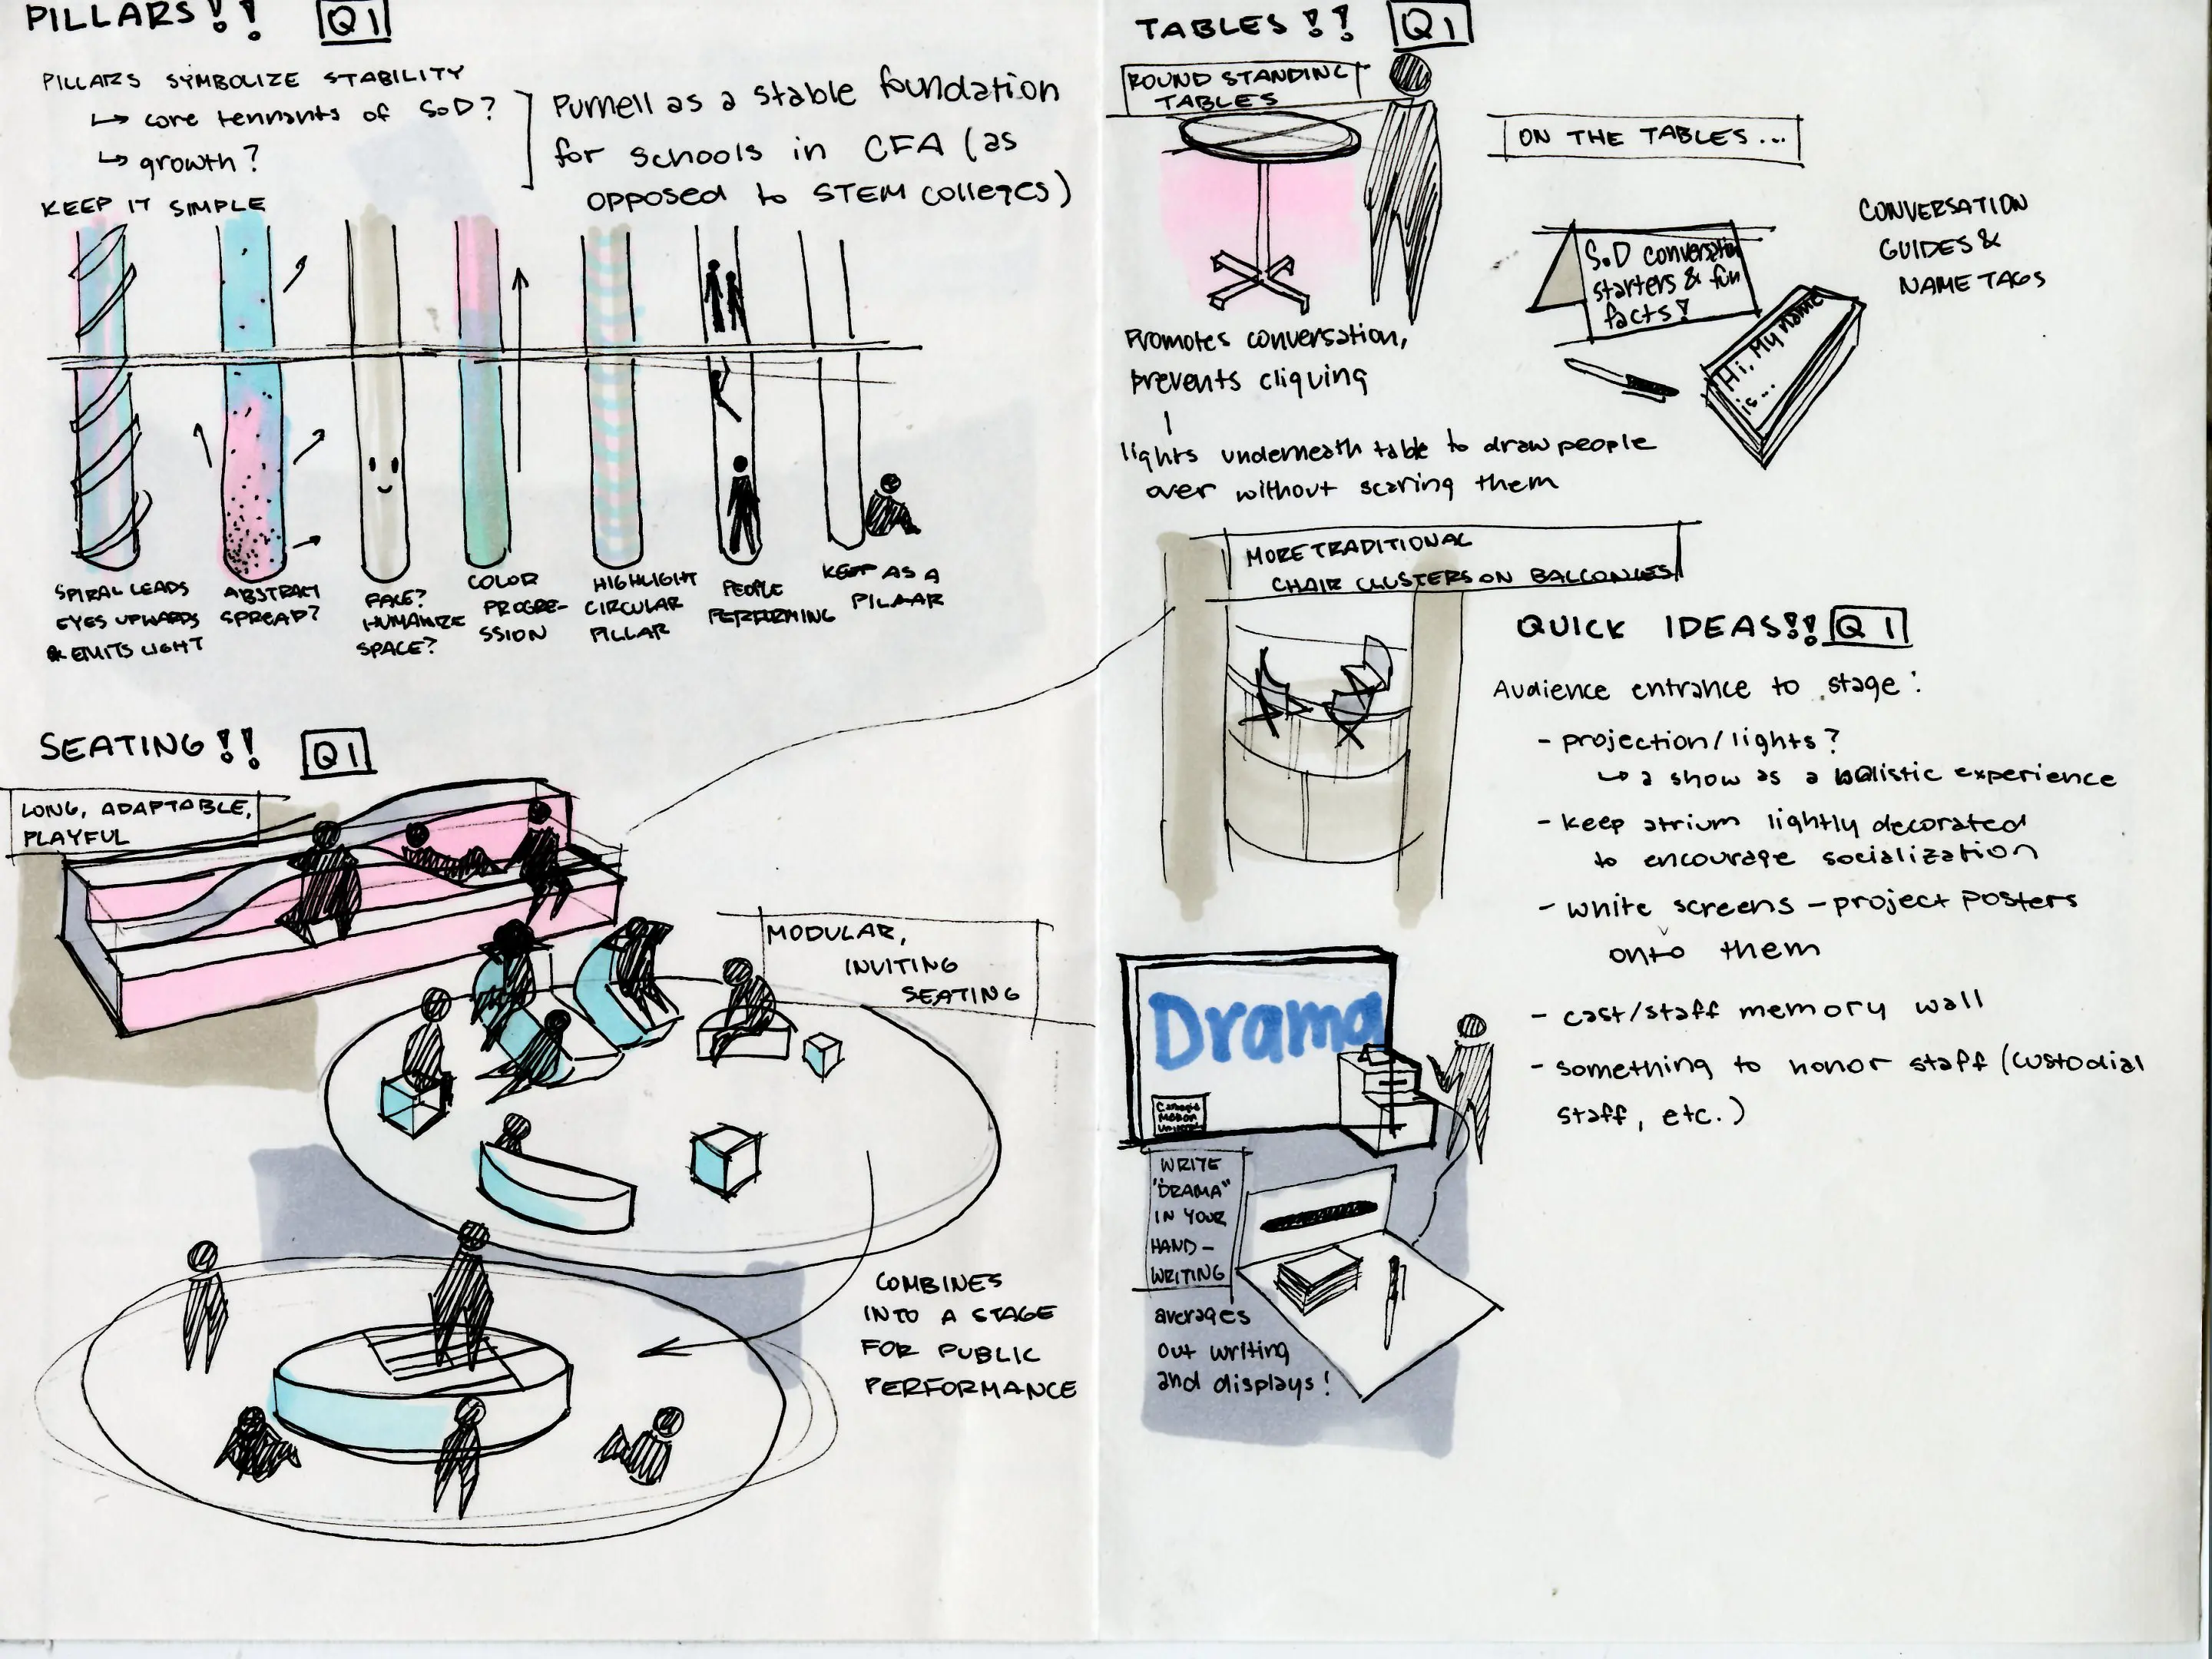 PILLARS!! Q1
PILLARS SYMBOLIZE STABILITY
↳ core tennants of SoD?
↳ growth?
Purnell as a stable foundation
for schools in CFA (as
opposed to STEM colleges)
KEEP IT SIMPLE
SPIRAL LEADS
EYES UPWARDS
& EMITS LIGHT
ABSTRACT
SPREAD?
FACE?
HUMANIZE
SPACE?
COLOR
PROGRE-
SSION
HIGHLIGHT
CIRCULAR
PILLAR
PEOPLE
PERFORMING
KEEP AS A
PILLAR
SEATING!! Q1
LONG, ADAPTABLE,
PLAYFUL
MODULAR,
INVITING
SEATING
COMBINES
INTO A STAGE
FOR PUBLIC
PERFORMANCE
TABLES!! Q1
ROUND STANDING
TABLES
Promotes conversation,
prevents cliquing
lights underneath table to draw people
over without scaring them
ON THE TABLES...
SoD conversation
starters & fun
facts!
Hi, My name
is...
CONVERSATION
GUIDES &
NAME TAGS
MORE TRADITIONAL
CHAIR CLUSTERS ON BALCONIES
QUICK IDEAS!! Q1
Audience entrance to stage:
- projection/lights?
↳ a show as a holistic experience
- keep atrium lightly decorated
to encourage socialization
- white screens - project posters
onto them
- cast/staff memory wall
- something to honor staff (custodial
staff, etc.)
Drama
Carnegie
Mellon
University
WRITE
"DRAMA"
IN YOUR
HAND-
WRITING
averages
out writing
and displays!